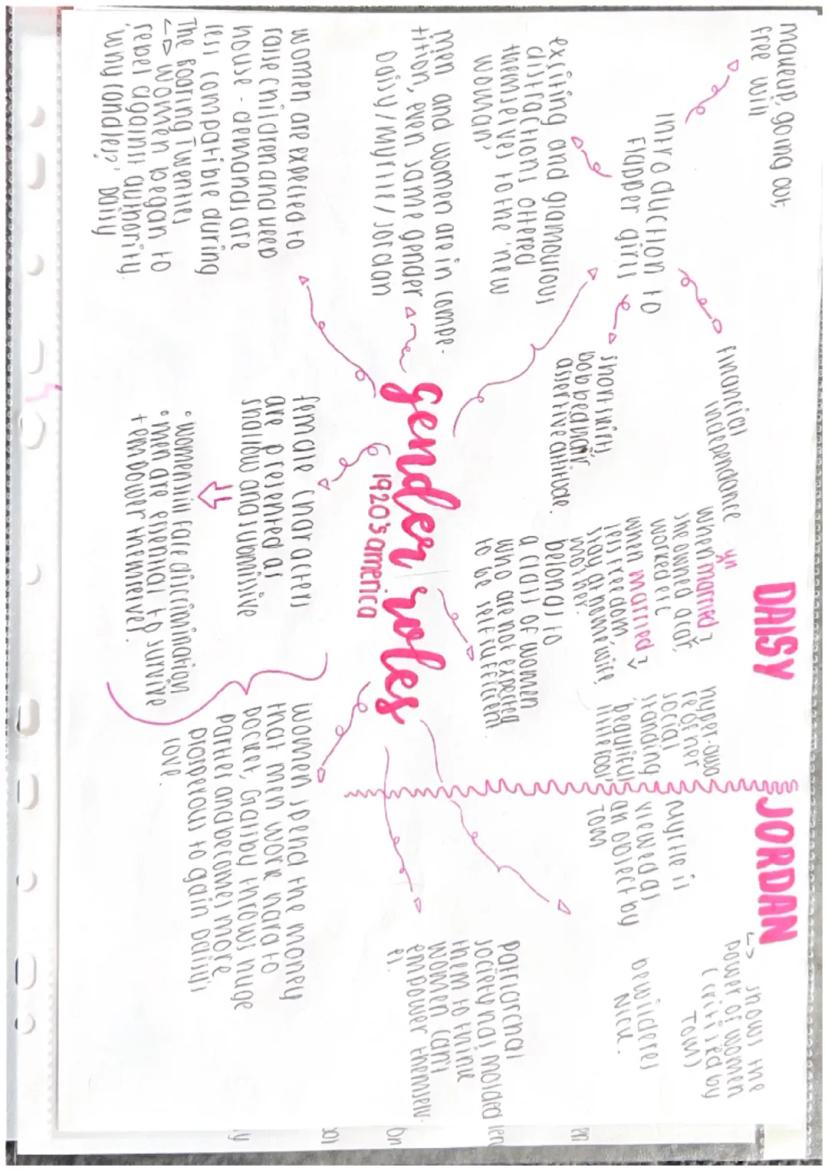 makeup, going out,
free will
introduction to
flapper girls
exciting and glamourous
distractions offered
themselves to the 'new
woman'
men and women are in compe-
tition, even same gender
Daisy / Myrtle / Jordan
women are expected to
raise children and keep
house - demands are
less compatible during
The Roaring Twenties
↳ women began to
rebel against authority.
'why candles?' Daisy
financial
independance
short skirts,
bobbed hair,
assertive attitude.
gender roles
1920's america
female characters
are presented as
shallow and submissive
• women still face discrimination
• men are essential to survive
+ empower themselve.
DAISY
un
when married →
she owned a car,
worked etc
when married →
less freedom,
stay at home, wife,
mother.
belongs to
a class of women
who are not expected
to be self sufficient.
hyper-awa
re of her
social
standing
'beautiful
little fool'
women spend the money
that men work hard to
pocket, Gatsby throws huge
parties and becomes more
prosperous to gain Daisy's
love.
JORDAN
↳ shows the
power of women
(critised by
Tom)
bewilderes
Nick.
Myrtle is
viewed as
an object by
Tom
patriarchal
society has molded
them to think
women can't
empower themselv-
es.